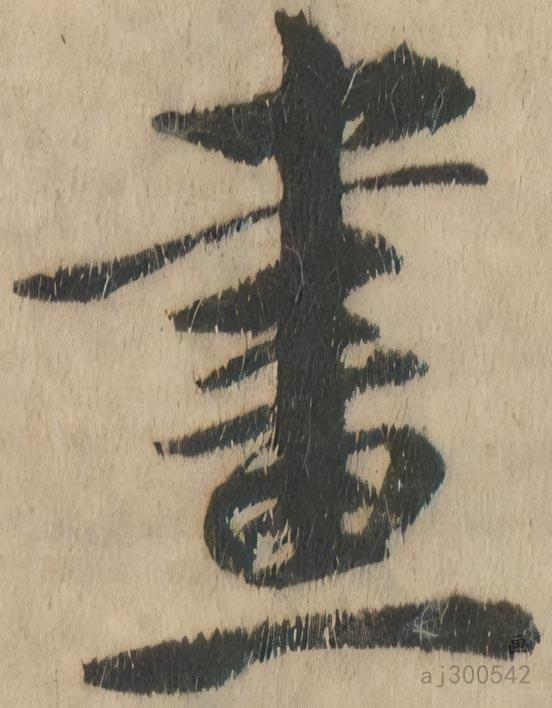 畫
画
aj300542